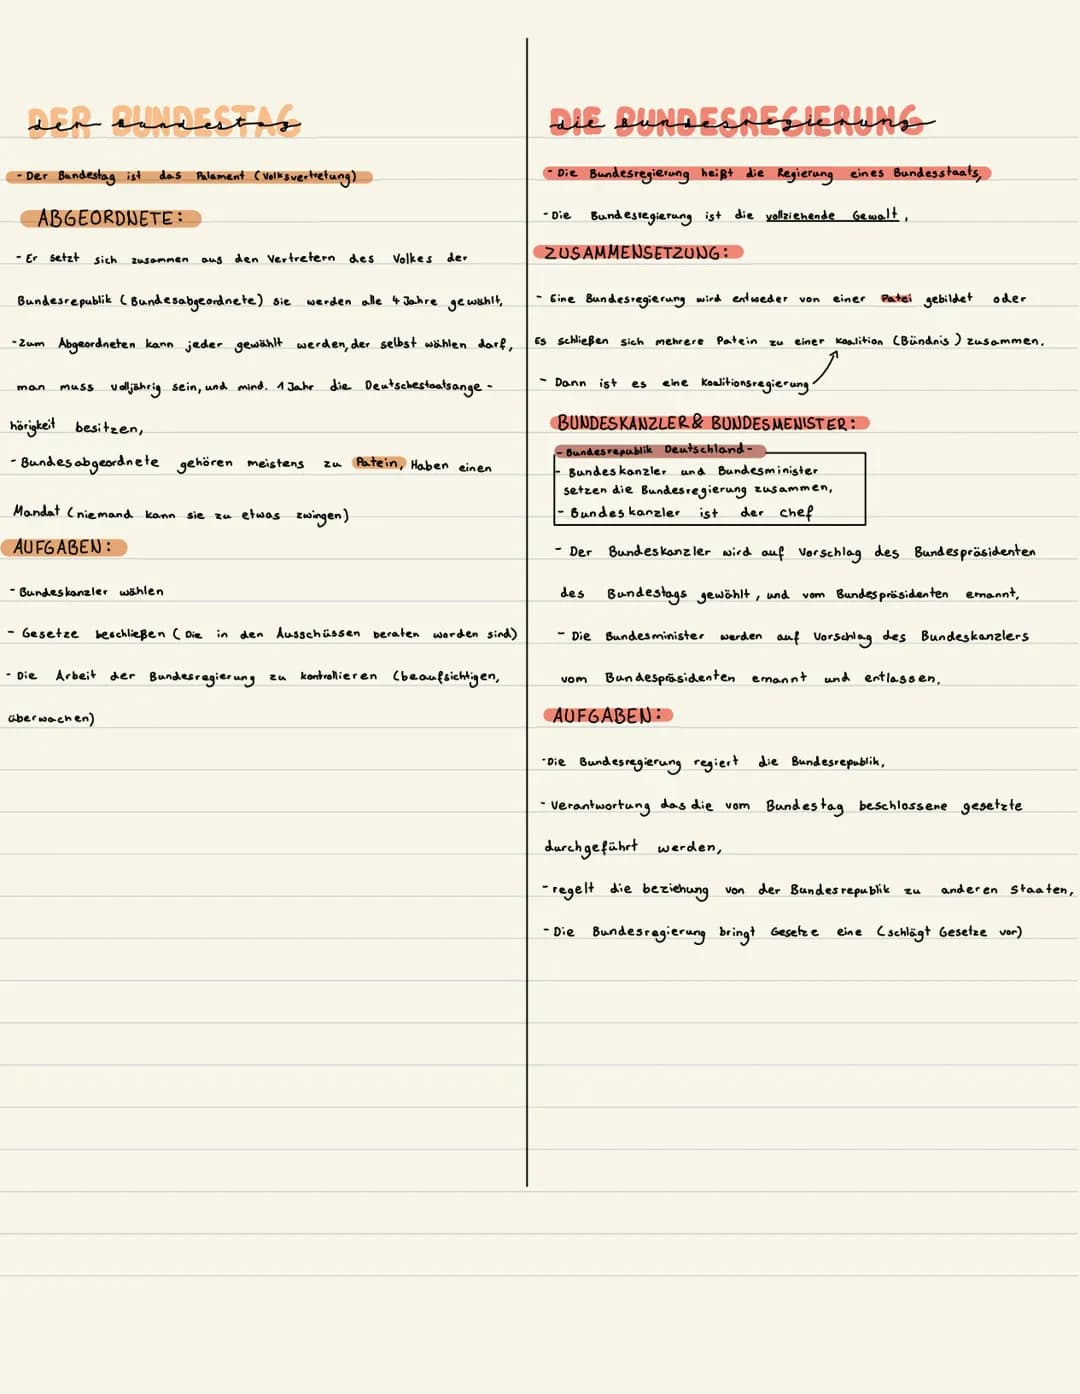 DER BUNDESTAG
der Bundestag
- Der Bundestag ist das Palament (Volksvertretung)
ABGEORDNETE:
- Er setzt sich zusammen aus den Vertretern des Volkes der
Bundesrepublik (Bundesabgeordnete) sie werden alle 4 Jahre gewählt,
- Zum Abgeordneten kann jeder gewählt werden, der selbst wählen darf,
man muss volljährig sein, und mind. 1 Jahr die Deutschestaatsange-
hörigkeit besitzen,
- Bundesabgeordnete gehören meistens zu Patein, Haben einen
Mandat (niemand kann sie zu etwas zwingen)
AUFGABEN:
- Bundeskanzler wählen
- Gesetze beschließen (Die in den Ausschüssen beraten worden sind)
- Die Arbeit der Bundesregierung zu kontrollieren (beaufsichtigen,
überwachen)
DIE BUNDESREGIERUNG
die Bundesregierung
- Die Bundesregierung heißt die Regierung eines Bundesstaats,
- Die Bundesregierung ist die vollziehende Gewalt,
ZUSAMMENSETZUNG:
- Eine Bundesregierung wird entweder von einer Patei gebildet oder
Es schließen sich mehrere Patein zu einer Koalition (Bündnis) zusammen.
- Dann ist es eine Koalitionsregierung
BUNDESKANZLER & BUNDESMENISTER:
- Bundesrepublik Deutschland -
- Bundeskanzler und Bundesminister
setzen die Bundesregierung zusammen,
- Bundeskanzler ist der chef
- Der Bundeskanzler wird auf Vorschlag des Bundespräsidenten
des Bundestags gewählt, und vom Bundespräsidenten ernannt,
- Die Bundesminister werden auf Vorschlag des Bundeskanzlers
vom Bundespräsidenten ernannt und entlassen,
AUFGABEN:
- Die Bundesregierung regiert die Bundesrepublik,
- Verantwortung das die vom Bundestag beschlossene gesetzte
durchgeführt werden,
- regelt die beziehung von der Bundesrepublik zu anderen Staaten,
- Die Bundesregierung bringt Gesetze eine (schlägt Gesetze vor)